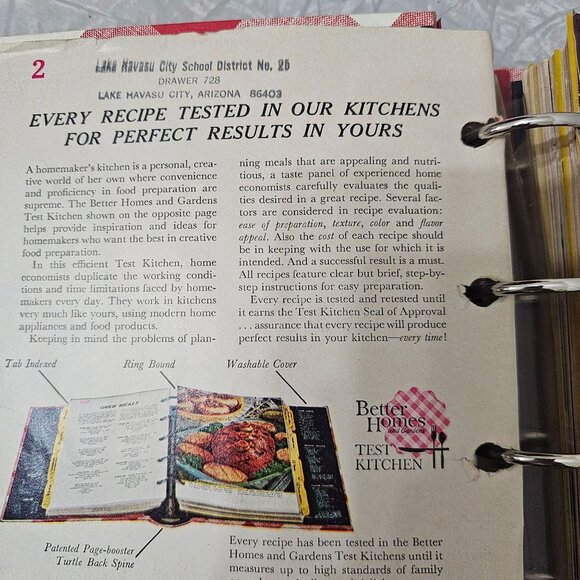 2
Lake Havasu City School District No. 25
DRAWER 728
LAKE HAVASU CITY, ARIZONA 86403
EVERY RECIPE TESTED IN OUR KITCHENS
FOR PERFECT RESULTS IN YOURS
A homemaker's kitchen is a personal, crea-
tive world of her own where convenience
and proficiency in food preparation are
supreme. The Better Homes and Gardens
Test Kitchen shown on the opposite page
helps provide inspiration and ideas for
homemakers who want the best in creative
food preparation.
In this efficient Test Kitchen, home
economists duplicate the working condi-
tions and time limitations faced by home-
makers every day. They work in kitchens
very much like yours, using modern home
appliances and food products.
Keeping in mind the problems of plan-
ning meals that are appealing and nutri-
tious, a taste panel of experienced home
economists carefully evaluates the quali-
ties desired in a great recipe. Several fac-
tors are considered in recipe evaluation:
ease of preparation, texture, color and flavor
appeal. Also the cost of each recipe should
be in keeping with the use for which it is
intended. And a successful result is a must.
All recipes feature clear but brief, step-by-
step instructions for easy preparation.
Every recipe is tested and retested until
it earns the Test Kitchen Seal of Approval
. . . assurance that every recipe will produce
perfect results in your kitchen—every time!
Tab Indexed
Ring Bound
Washable Cover
OVEN MEALS
Better
Homes
and Gardens
TEST
KITCHEN
Patented Page-booster
Turtle Back Spine
Every recipe has been tested in the Better
Homes and Gardens Test Kitchens until it
measures up to high standards of family